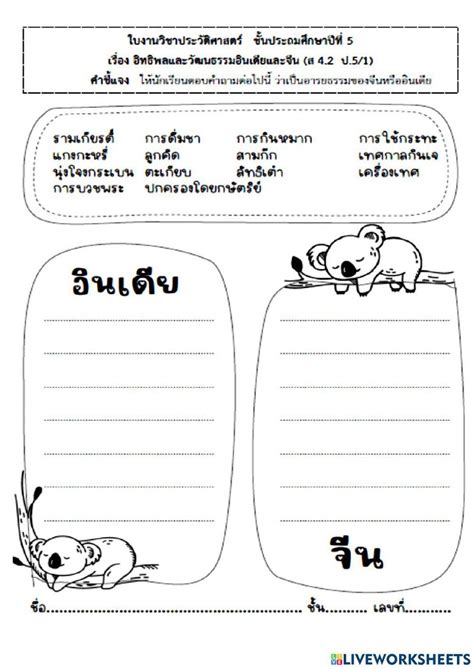 ใบงานวิชาประวัติศาสตร์ ชั้นประถมศึกษาปีที่ 5
เรื่อง อิทธิพลและวัฒนธรรมอินเดียและจีน (ส 4.2 ป.5/1)
คำชี้แจง ให้นักเรียนตอบคำถามต่อไปนี้ ว่าเป็นอารยธรรมของจีนหรืออินเดีย
รามเกียรติ์ การดื่มชา การกินหมาก การใช้กระทะ
แกงกะหรี่ ลูกคิด สามก๊ก เทศกาลกินเจ
นุ่งโจงกระเบน ตะเกียบ ลัทธิเต๋า เครื่องเทศ
การบวชพระ ปกครองโดยกษัตริย์
อินเดีย
จีน
ชื่อ.......................................................... ชั้น......... เลขที่..........
LIVEWORKSHEETS